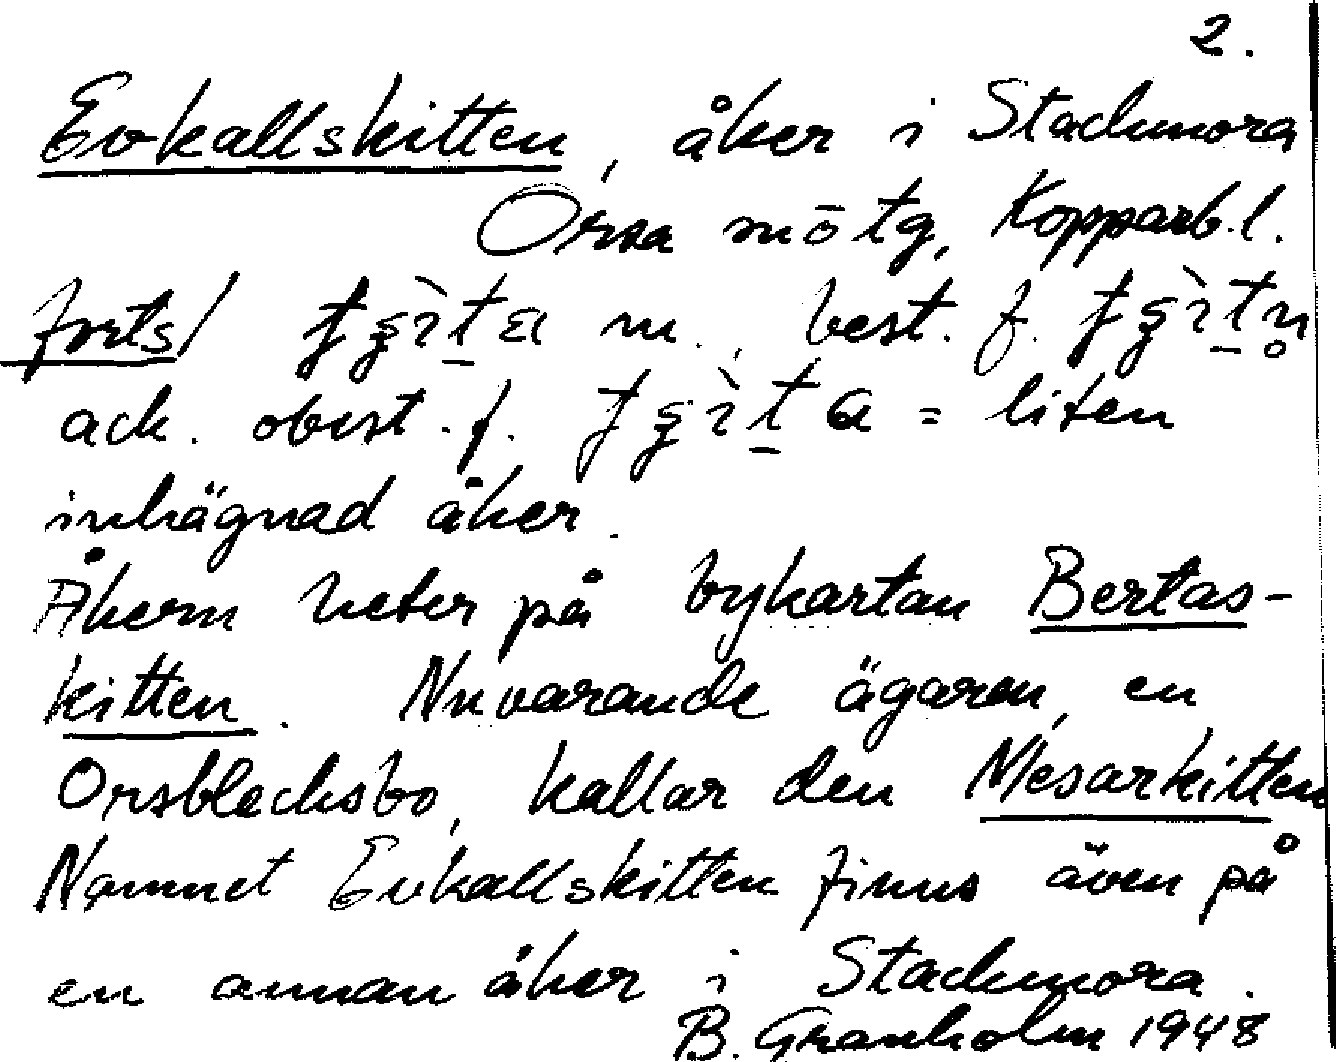 2.
Evkallskitten, åker i Stackmora
Orsa sn ö tg, Kopparb. l.
forts/ m., best. f.
ack. obest. f. = liten
inhägnad åker.
Åkern heter på bykartan Bertas-
kitten. Nuvarande ägaren, en
Orsblecksbo, kallar den Mesarkitten
Namnet Evkallskitten finns även på
en annan åker i Stackmora.
B. Granholm 1948